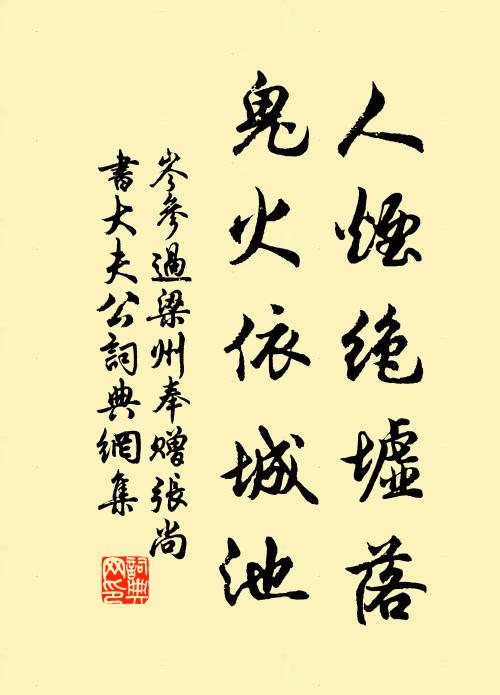 人煙絶墟落
鬼火依城池
岑參過梁州奉贈張尚
書大夫公詞典網集
詞典
网印